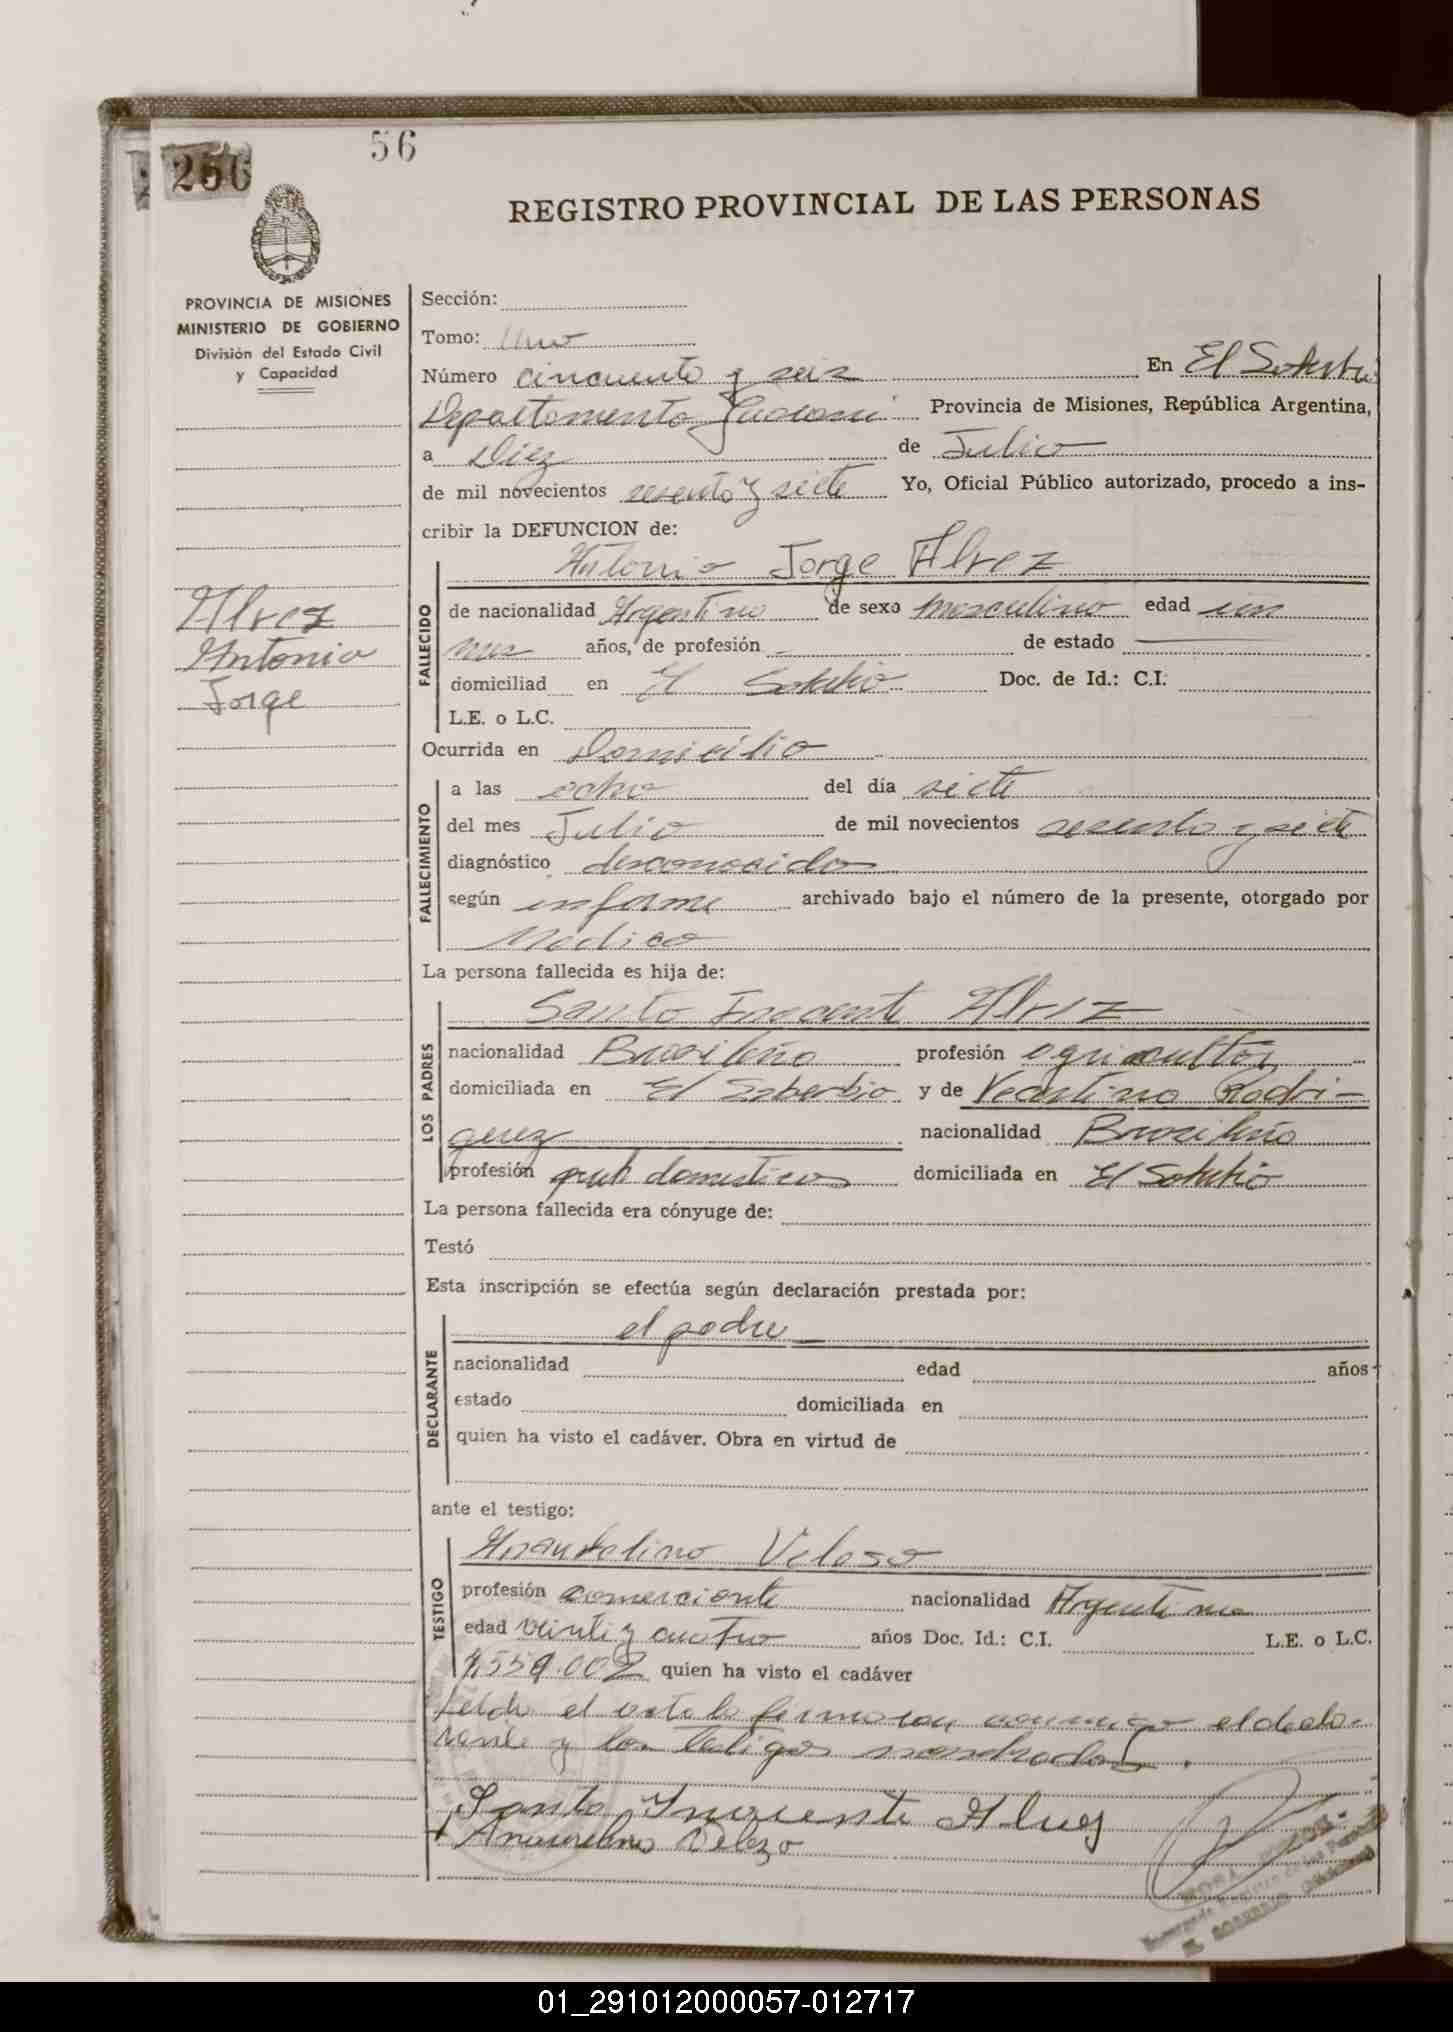 56
256
REGISTRO PROVINCIAL DE LAS PERSONAS
PROVINCIA DE MISIONES
MINISTERIO DE GOBIERNO
División del Estado Civil
y Capacidad
Alvez
Antonio
Jorge
Sección:
Tomo: Uno
Número cincuenta y seis En El Soberbio
Departamento Guarani Provincia de Misiones, República Argentina,
a Diez de Julio
de mil novecientos sesenta y siete Yo, Oficial Público autorizado, procedo a ins-
cribir la DEFUNCION de:
Antonio Jorge Alvez
FALLECIDO
de nacionalidad Argentino de sexo masculino edad un
mes años, de profesión de estado
domiciliad en El Soberbio Doc. de Id.: C.I.
L.E. o L.C.
Ocurrida en Domicilio
FALLECIMIENTO
a las ocho del día siete
del mes Julio de mil novecientos sesenta y siete
diagnóstico desconocido
según informe archivado bajo el número de la presente, otorgado por
Medico
La persona fallecida es hija de:
LOS PADRES
Santo Inocente Alvez
nacionalidad Brasileño profesión agricultor
domiciliada en El Soberbio y de Rodri-
guez nacionalidad Brasileña
profesión domesticos domiciliada en El Soberbio
La persona fallecida era cónyuge de:
Testó
Esta inscripción se efectúa según declaración prestada por:
DECLARANTE
el padre
nacionalidad edad años
estado domiciliada en
quien ha visto el cadáver. Obra en virtud de
ante el testigo:
TESTIGO
Veloso
profesión comerciante nacionalidad Argentino
edad veinti y cuatro años Doc. Id.: C.I. L.E. o L.C.
7.559.002 quien ha visto el cadáver
Leida el acta la firmaron conmigo el decla-
rante y los testigos nombrados.
Santo Inocente Alves
Velozo
EL SOBERBIO (Misiones)
01_291012000057-012717